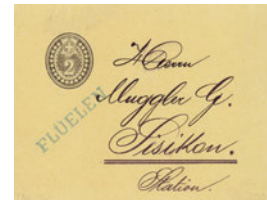 2
FLÜELEN
Herrn
Muggler G.
Sisikon.
Station.